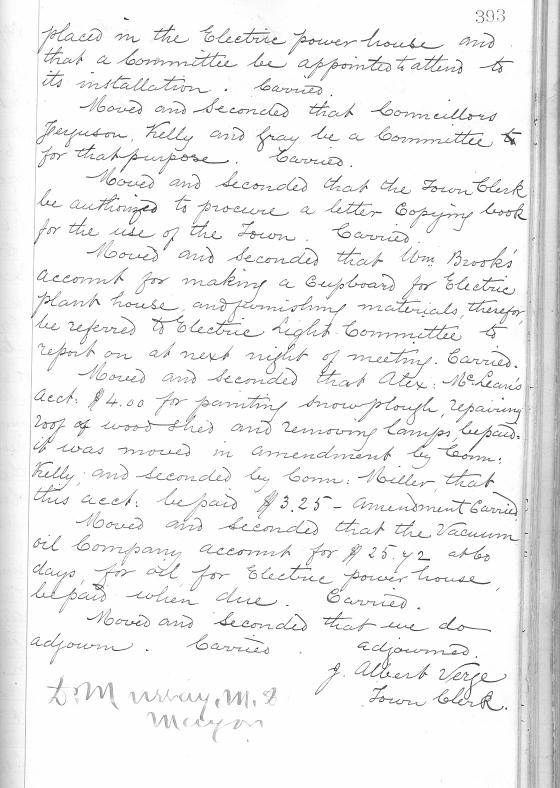 393
placed in the Electric power house and
that a Committee be appointed to attend to
its installation. Carried.
Moved and Seconded that Councillors
Ferguson, Kelly and Gray be a Committee
for that purpose. Carried.
Moved and Seconded that the Town Clerk
be authorized to procure a letter Copying book
for the use of the Town. Carried.
Moved and Seconded that Wm Brook's
account for making a Cupboard for Electric
plant house, and furnishing materials, therefor,
be referred to Electric Light Committee to
report on at next night of meeting. Carried.
Moved and Seconded that Alex: McLean's
acct: $4.00 for painting snow plough, repairing
roof of wood shed and removing lamps, be paid.
it was moved in amendment by Coun:
Kelly, and seconded by Coun: Miller, that
this acct: be paid $3.25 – Amendment Carried.
Moved and Seconded that the Vacuum
oil Company account for $25.42 at 60
days, for oil, for Electric power house,
be paid when due. Carried.
Moved and Seconded that we do
adjourn. Carried. adjourned.
J. Albert Verge
Town Clerk.
D. Murray, M.D
Mayor